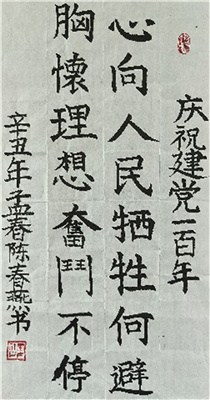 庆祝建党一百年
心向人民牺牲何避
胸懷理想奮鬥不停
辛丑年孟春陈春燕书